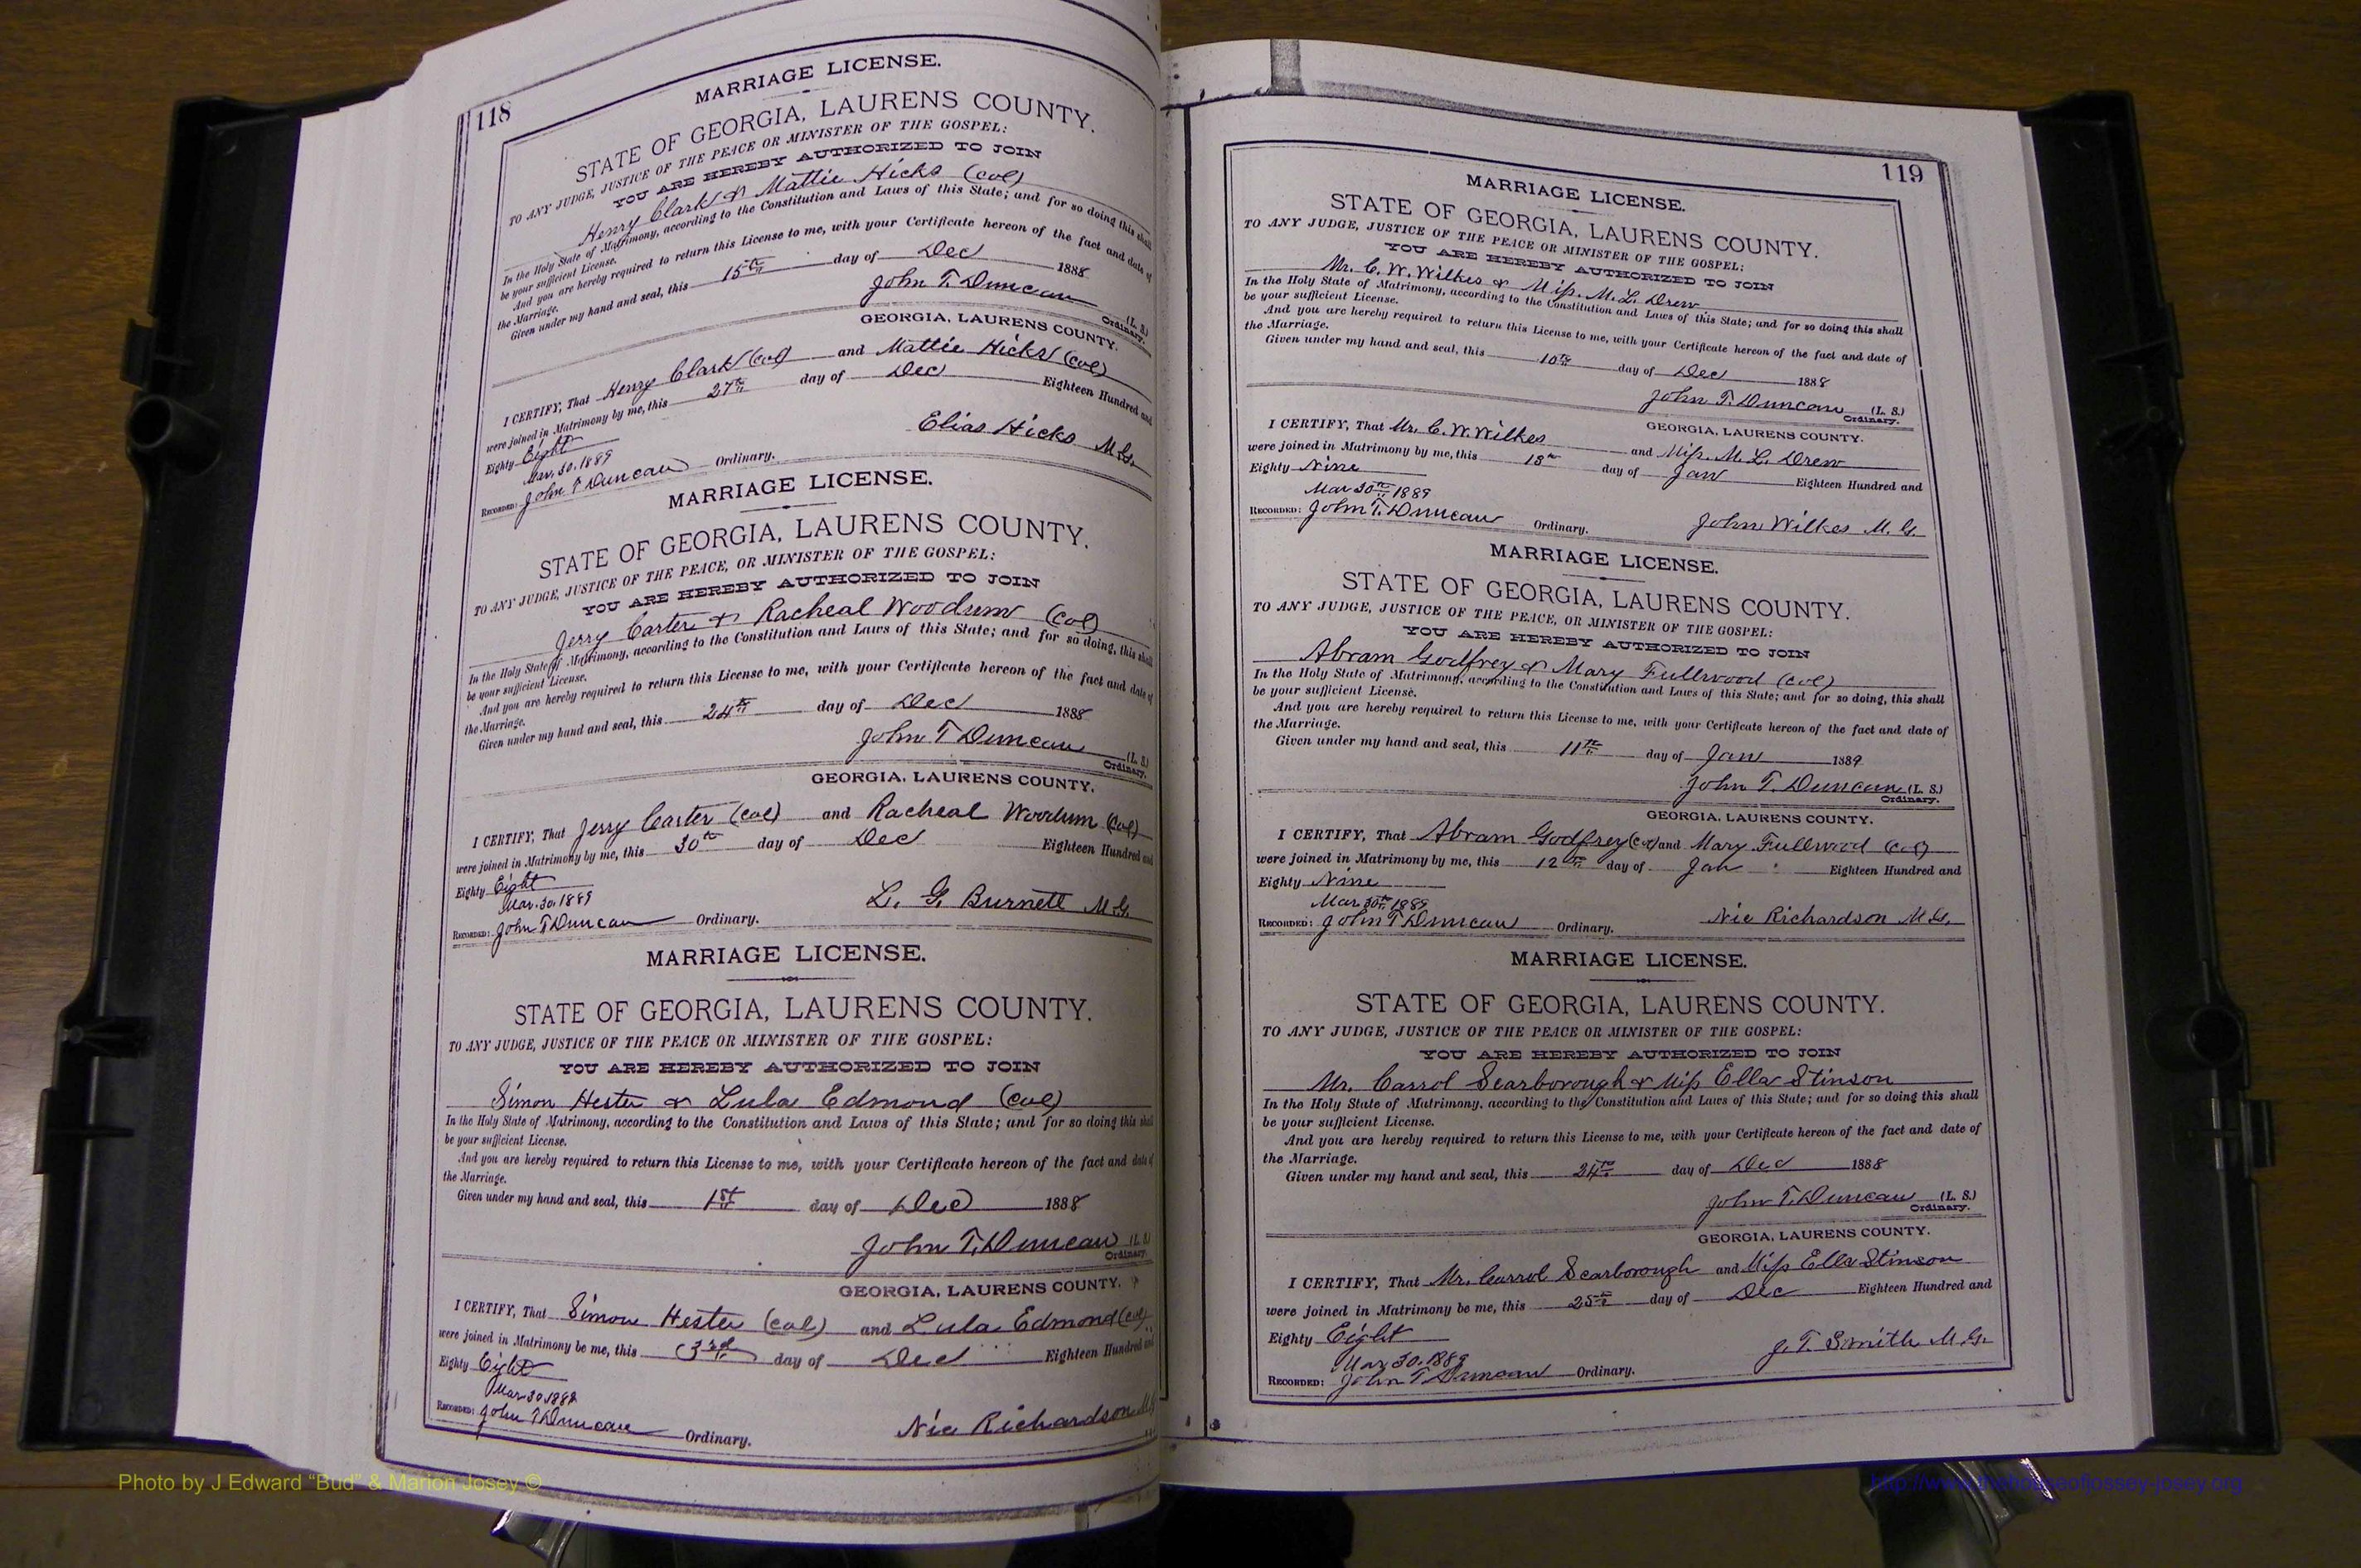 118
MARRIAGE LICENSE.
STATE OF GEORGIA, LAURENS COUNTY.
TO ANY JUDGE, JUSTICE OF THE PEACE OR MINISTER OF THE GOSPEL:
YOU ARE HEREBY AUTHORIZED TO JOIN
Henry Clark & Mattie Hicks (col)
In the Holy State of Matrimony, according to the Constitution and Laws of this State; and for so doing this shall
be your sufficient License.
And you are hereby required to return this License to me, with your Certificate hereon of the fact and date of
the Marriage.
Given under my hand and seal, this 15th day of Dec 1888
John T. Duncan (L. S.)
Ordinary.
GEORGIA, LAURENS COUNTY.
I CERTIFY, That Henry Clark (col) and Mattie Hicks (col)
were joined in Matrimony by me, this 27th day of Dec Eighteen Hundred and
Eighty Eight
Mar. 30. 1889
Elias Hicks M.G.
RECORDED: John T Duncan Ordinary.
MARRIAGE LICENSE.
STATE OF GEORGIA, LAURENS COUNTY.
TO ANY JUDGE, JUSTICE OF THE PEACE, OR MINISTER OF THE GOSPEL:
YOU ARE HEREBY AUTHORIZED TO JOIN
Jerry Carter & Racheal Woodum (col)
In the Holy State of Matrimony, according to the Constitution and Laws of this State; and for so doing, this shall
be your sufficient License.
And you are hereby required to return this License to me, with your Certificate hereon of the fact and date of
the Marriage.
Given under my hand and seal, this 24th day of Dec 1888
John T Duncan (L. S.)
Ordinary.
GEORGIA, LAURENS COUNTY.
I CERTIFY, That Jerry Carter (col) and Racheal Woodum (col)
were joined in Matrimony by me, this 30th day of Dec Eighteen Hundred and
Eighty Eight
Mar. 30. 1889
L. G. Burnett M.G.
RECORDED: John T Duncan Ordinary.
MARRIAGE LICENSE.
STATE OF GEORGIA, LAURENS COUNTY.
TO ANY JUDGE, JUSTICE OF THE PEACE OR MINISTER OF THE GOSPEL:
YOU ARE HEREBY AUTHORIZED TO JOIN
Simon Hester & Lula Edmond (col)
In the Holy State of Matrimony, according to the Constitution and Laws of this State; and for so doing this shall
be your sufficient License.
And you are hereby required to return this License to me, with your Certificate hereon of the fact and date of
the Marriage.
Given under my hand and seal, this 1st day of Dec 1888
John T. Duncan (L. S.)
Ordinary.
GEORGIA, LAURENS COUNTY.
I CERTIFY, That Simon Hester (col) and Lula Edmond (col)
were joined in Matrimony be me, this 3rd day of Dec Eighteen Hundred and
Eighty Eight
Mar 30 1889
RECORDED: John T Duncan Ordinary.
Nic Richardson M.G.
119
MARRIAGE LICENSE.
STATE OF GEORGIA, LAURENS COUNTY.
TO ANY JUDGE, JUSTICE OF THE PEACE OR MINISTER OF THE GOSPEL:
YOU ARE HEREBY AUTHORIZED TO JOIN
Mr. C. W. Wilkes & Miss. M. L. Drew
In the Holy State of Matrimony, according to the Constitution and Laws of this State; and for so doing this shall
be your sufficient License.
And you are hereby required to return this License to me, with your Certificate hereon of the fact and date of
the Marriage.
Given under my hand and seal, this 10th day of Dec 1888
John T. Duncan (L. S.)
Ordinary.
GEORGIA, LAURENS COUNTY.
I CERTIFY, That Mr. C. W. Wilkes and Miss. M. L. Drew
were joined in Matrimony by me, this 13th day of Jan Eighteen Hundred and
Eighty Nine
Mar 30th 1889
RECORDED: John T. Duncan Ordinary. John Wilkes M. G.
MARRIAGE LICENSE.
STATE OF GEORGIA, LAURENS COUNTY.
TO ANY JUDGE, JUSTICE OF THE PEACE, OR MINISTER OF THE GOSPEL:
YOU ARE HEREBY AUTHORIZED TO JOIN
Abram Godfrey & Mary Fullwood (col)
In the Holy State of Matrimony, according to the Constitution and Laws of this State; and for so doing, this shall
be your sufficient License.
And you are hereby required to return this License to me, with your Certificate hereon of the fact and date of
the Marriage.
Given under my hand and seal, this 11th day of Jan 1889
John T. Duncan (L. S.)
Ordinary.
GEORGIA, LAURENS COUNTY.
I CERTIFY, That Abram Godfrey (col) and Mary Fullwood (col)
were joined in Matrimony by me, this 12th day of Jan Eighteen Hundred and
Eighty Nine
Mar 30th 1889
RECORDED: John T Duncan Ordinary. Nic Richardson M.G.
MARRIAGE LICENSE.
STATE OF GEORGIA, LAURENS COUNTY.
TO ANY JUDGE, JUSTICE OF THE PEACE OR MINISTER OF THE GOSPEL:
YOU ARE HEREBY AUTHORIZED TO JOIN
Mr. Carrol Scarborough & Miss Ella Stinson
In the Holy State of Matrimony, according to the Constitution and Laws of this State; and for so doing this shall
be your sufficient License.
And you are hereby required to return this License to me, with your Certificate hereon of the fact and date of
the Marriage.
Given under my hand and seal, this 24th day of Dec 1888
John T. Duncan (L. S.)
Ordinary.
GEORGIA, LAURENS COUNTY.
I CERTIFY, That Mr. Carrol Scarborough and Miss Ella Stinson
were joined in Matrimony be me, this 25th day of Dec Eighteen Hundred and
Eighty Eight
Mar 30. 1889
J. T. Smith M.G.
RECORDED: John T Duncan Ordinary.
Photo by J Edward “Bud” & Marion Josey ©
http://www.thehouseofjossey-josey.org